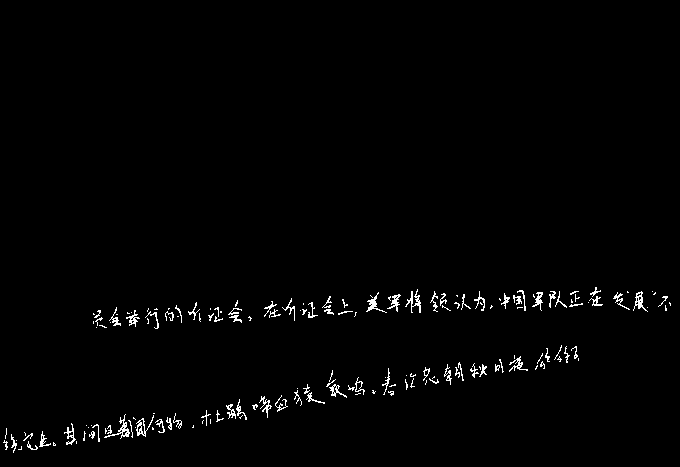 员会举行的介证会。在介证会上,美军将领认为,中国军队正在发展“不
绕宅生。其间旦暮闻何物,杜鹃啼血猿哀鸣。春江花朝秋月夜